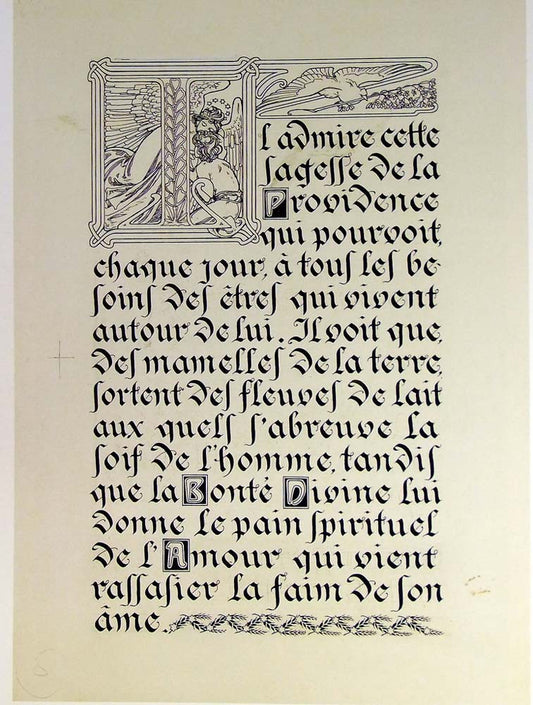 Il admire cette
sagesse de la
Providence
qui pourvoit,
chaque jour, à tous les be-
soins des êtres qui vivent
autour de lui. Il voit que,
des mamelles de la terre,
sortent des fleuves de lait
aux quels s'abreuve la
soif de l'homme, tandis
que la Bonté Divine lui
donne le pain spirituel
de l'Amour qui vient
rassasier la faim de son
âme.